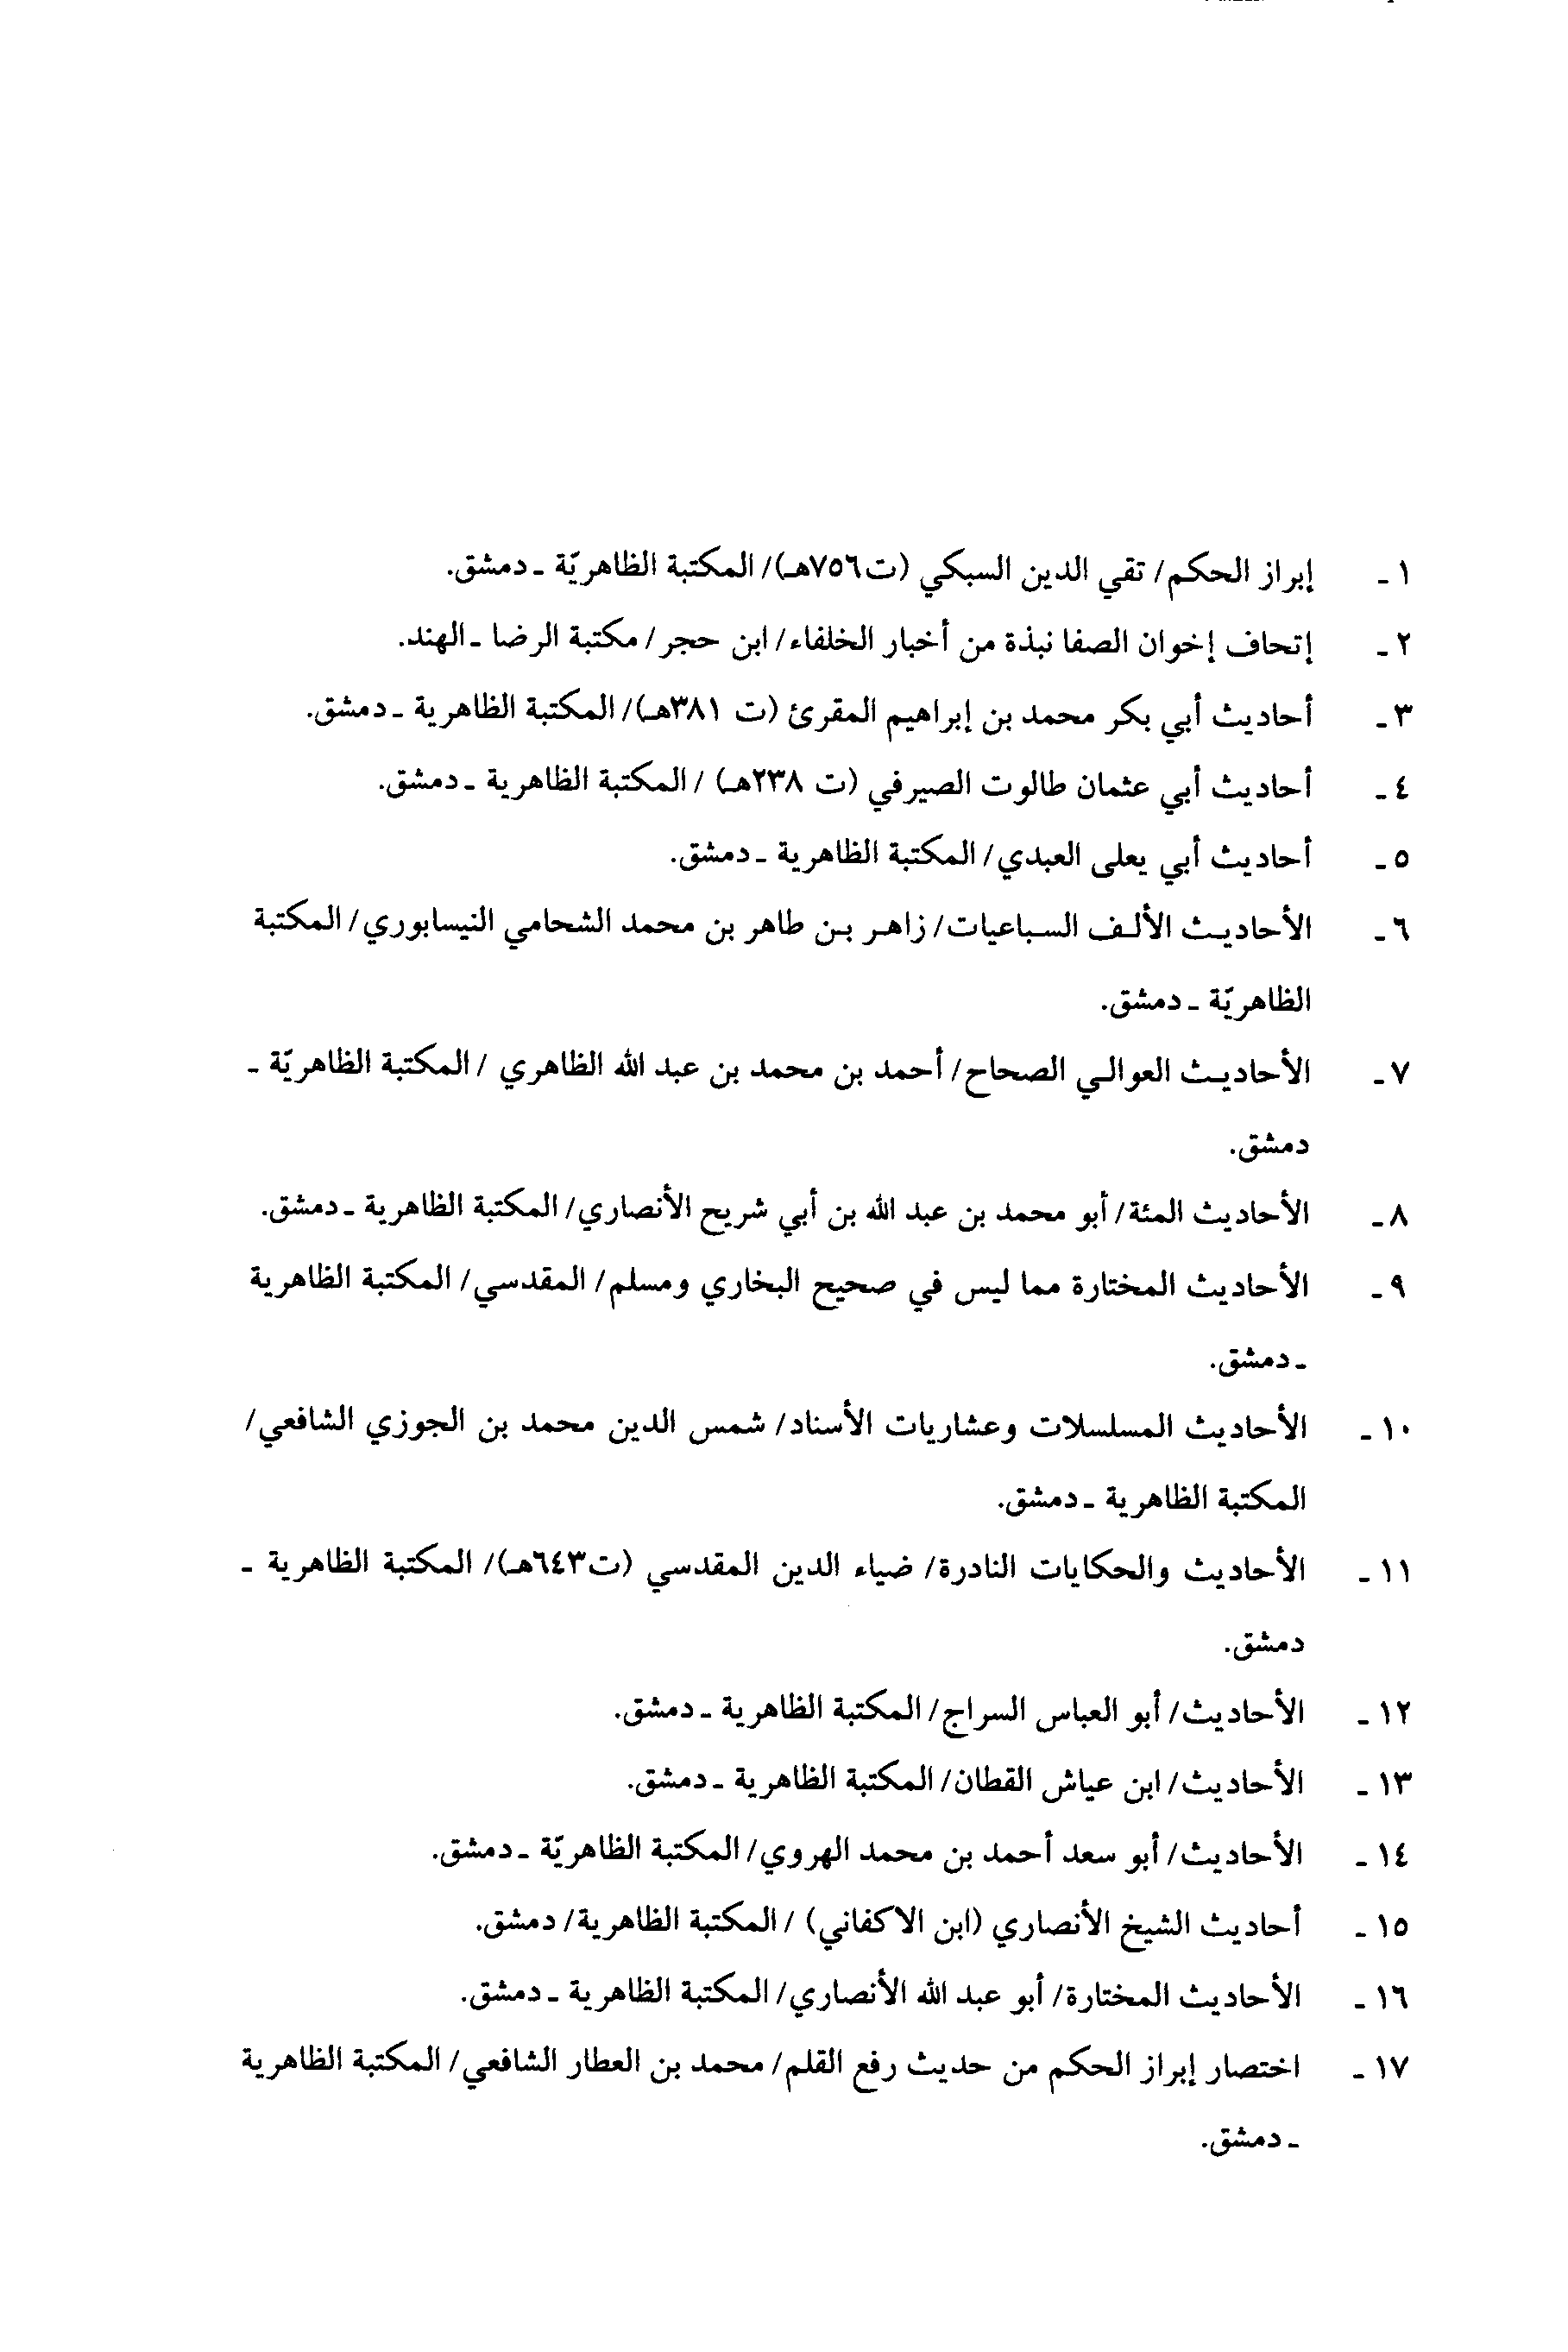 ١ - إبراز الحكم/ تقي الدين السبكي (ت٧٥٦هـ)/ المكتبة الظاهريّة - دمشق.
٢ - إتحاف إخوان الصفا نبذة من أخبار الخلفاء/ ابن حجر/ مكتبة الرضا - الهند.
٣ - أحاديث أبي بكر محمد بن إبراهيم المقرئ (ت ٣٨١هـ)/ المكتبة الظاهرية - دمشق.
٤ - أحاديث أبي عثمان طالوت الصيرفي (ت ٢٣٨هـ) / المكتبة الظاهرية - دمشق.
٥ - أحاديث أبي يعلى العبدي/ المكتبة الظاهرية - دمشق.
٦ - الأحاديث الألف السباعيات/ زاهر بن طاهر بن محمد الشحامي النيسابوري/ المكتبة
الظاهريّة - دمشق.
٧ - الأحاديث العوالي الصحاح/ أحمد بن محمد بن عبد الله الظاهري / المكتبة الظاهريّة -
دمشق.
٨ - الأحاديث المئة/ أبو محمد بن عبد الله بن أبي شريح الأنصاري/ المكتبة الظاهرية - دمشق.
٩ - الأحاديث المختارة مما ليس في صحيح البخاري ومسلم/ المقدسي/ المكتبة الظاهرية
- دمشق.
١٠ - الأحاديث المسلسلات وعشاريات الأسناد/ شمس الدين محمد بن الجوزي الشافعي/
المكتبة الظاهرية - دمشق.
١١ - الأحاديث والحكايات النادرة/ ضياء الدين المقدسي (ت٦٤٣هـ)/ المكتبة الظاهرية -
دمشق.
١٢ - الأحاديث/ أبو العباس السراج/ المكتبة الظاهرية - دمشق.
١٣ - الأحاديث/ ابن عياش القطان/ المكتبة الظاهرية - دمشق.
١٤ - الأحاديث/ أبو سعد أحمد بن محمد الهروي/ المكتبة الظاهريّة - دمشق.
١٥ - أحاديث الشيخ الأنصاري (ابن الاكفاني) / المكتبة الظاهرية/ دمشق.
١٦ - الأحاديث المختارة/ أبو عبد الله الأنصاري/ المكتبة الظاهرية - دمشق.
١٧ - اختصار إبراز الحكم من حديث رفع القلم/ محمد بن العطار الشافعي/ المكتبة الظاهرية
- دمشق.